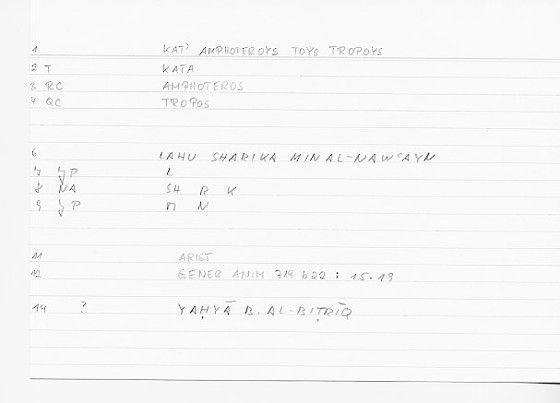 1 KAT' AMPHOTEROYS TOYS TROPOYS
2 T KATA
3 RC AMPHOTEROS
4 QC TROPOS
6 LAHU SHARIKA MIN AL-NAWʿAYN
7 JP L
8 NA SH R K
9 JP M N
11 ARIST
12 GENER ANIM 719 b22 : 15.19
14 ? YAḤYĀ B. AL-BIṬRĪQ